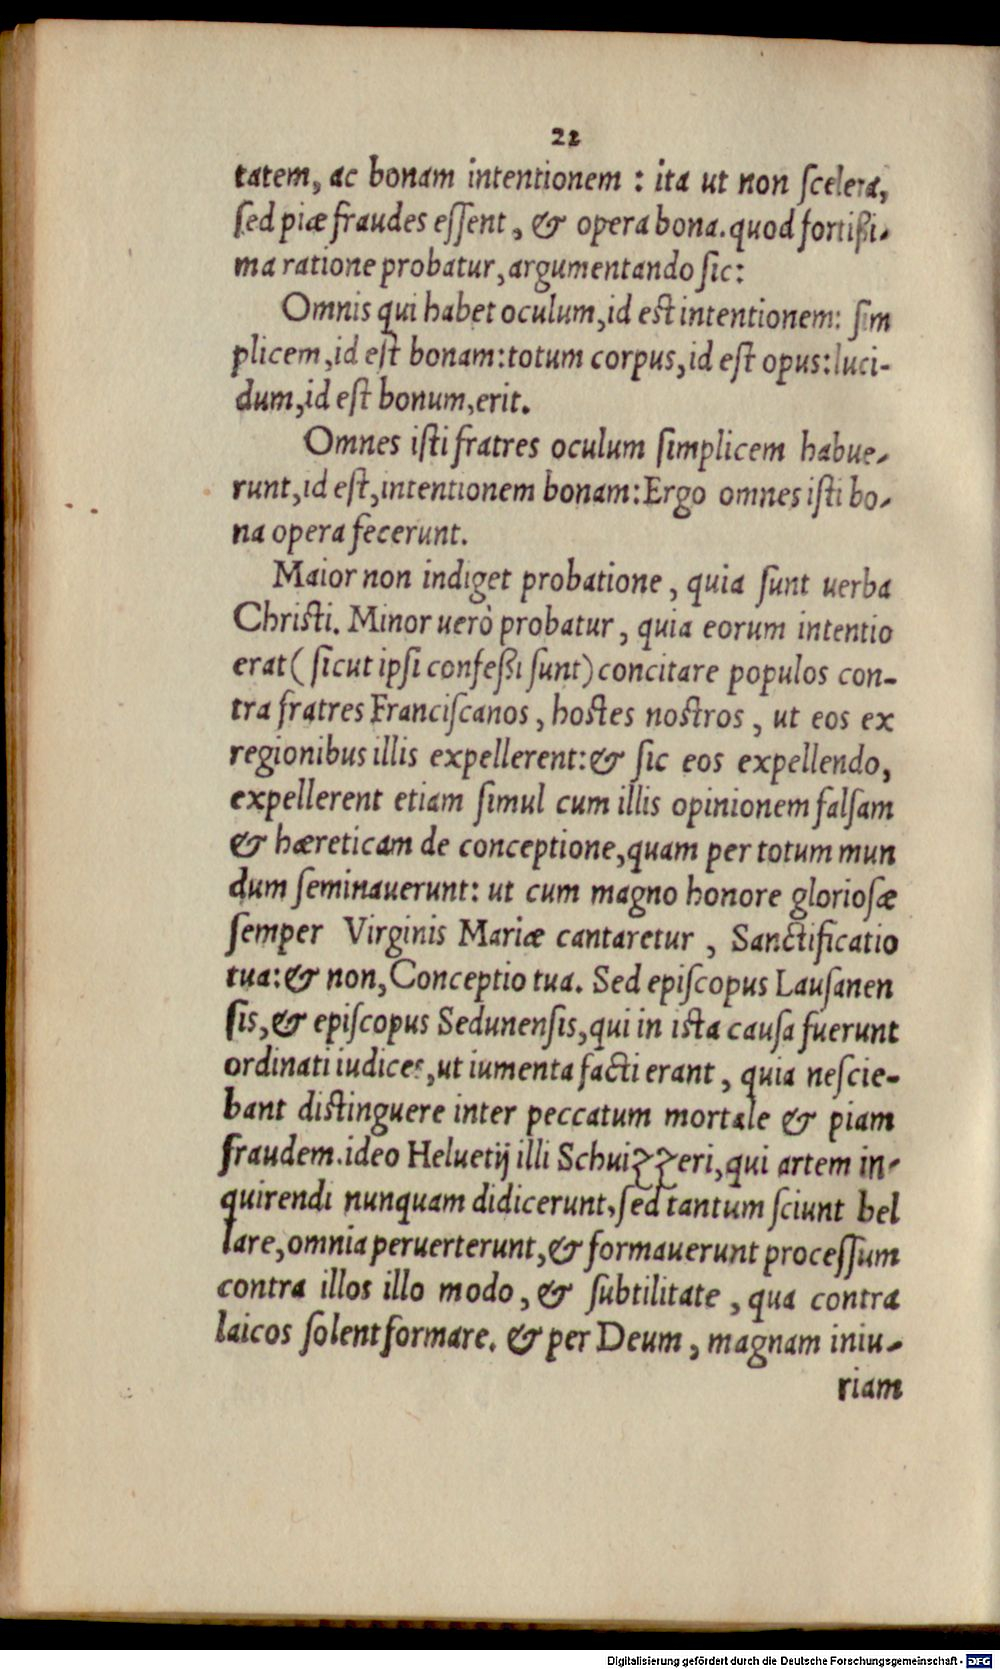 22
tatem, ac bonam intentionem : ita ut non ſcelera,
ſed piæ fraudes eſſent, & opera bona. quod fortißi-
ma ratione probatur, argumentando ſic:
Omnis qui habet oculum, id eſt intentionem: ſim
plicem, id eſt bonam: totum corpus, id eſt opus: luci-
dum, id eſt bonum, erit.
Omnes iſti fratres oculum ſimplicem habue-
runt, id eſt, intentionem bonam: Ergo omnes iſti bo-
na opera fecerunt.
Maior non indiget probatione, quia ſunt uerba
Chriſti. Minor uerò probatur, quia eorum intentio
erat (ſicut ipſi confeßi ſunt) concitare populos con-
tra fratres Franciſcanos, hoſtes noſtros, ut eos ex
regionibus illis expellerent: & ſic eos expellendo,
expellerent etiam ſimul cum illis opinionem falſam
& hæreticam de conceptione, quam per totum mun
dum ſeminauerunt: ut cum magno honore glorioſæ
ſemper Virginis Mariæ cantaretur, Sanctificatio
tua: & non, Conceptio tua. Sed epiſcopus Lauſanen
ſis, & epiſcopus Sedunenſis, qui in iſta cauſa fuerunt
ordinati iudices, ut iumenta facti erant, quia neſcie-
bant diſtinguere inter peccatum mortale & piam
fraudem. ideo Heluetij illi Schuizzeri, qui artem in-
quirendi nunquam didicerunt, ſed tantum ſciunt bel
lare, omnia peruerterunt, & formauerunt proceſſum
contra illos illo modo, & ſubtilitate, qua contra
laicos ſolent formare. & per Deum, magnam iniu-
riam
Digitalisierung gefördert durch die Deutsche Forschungsgemeinschaft - DFG